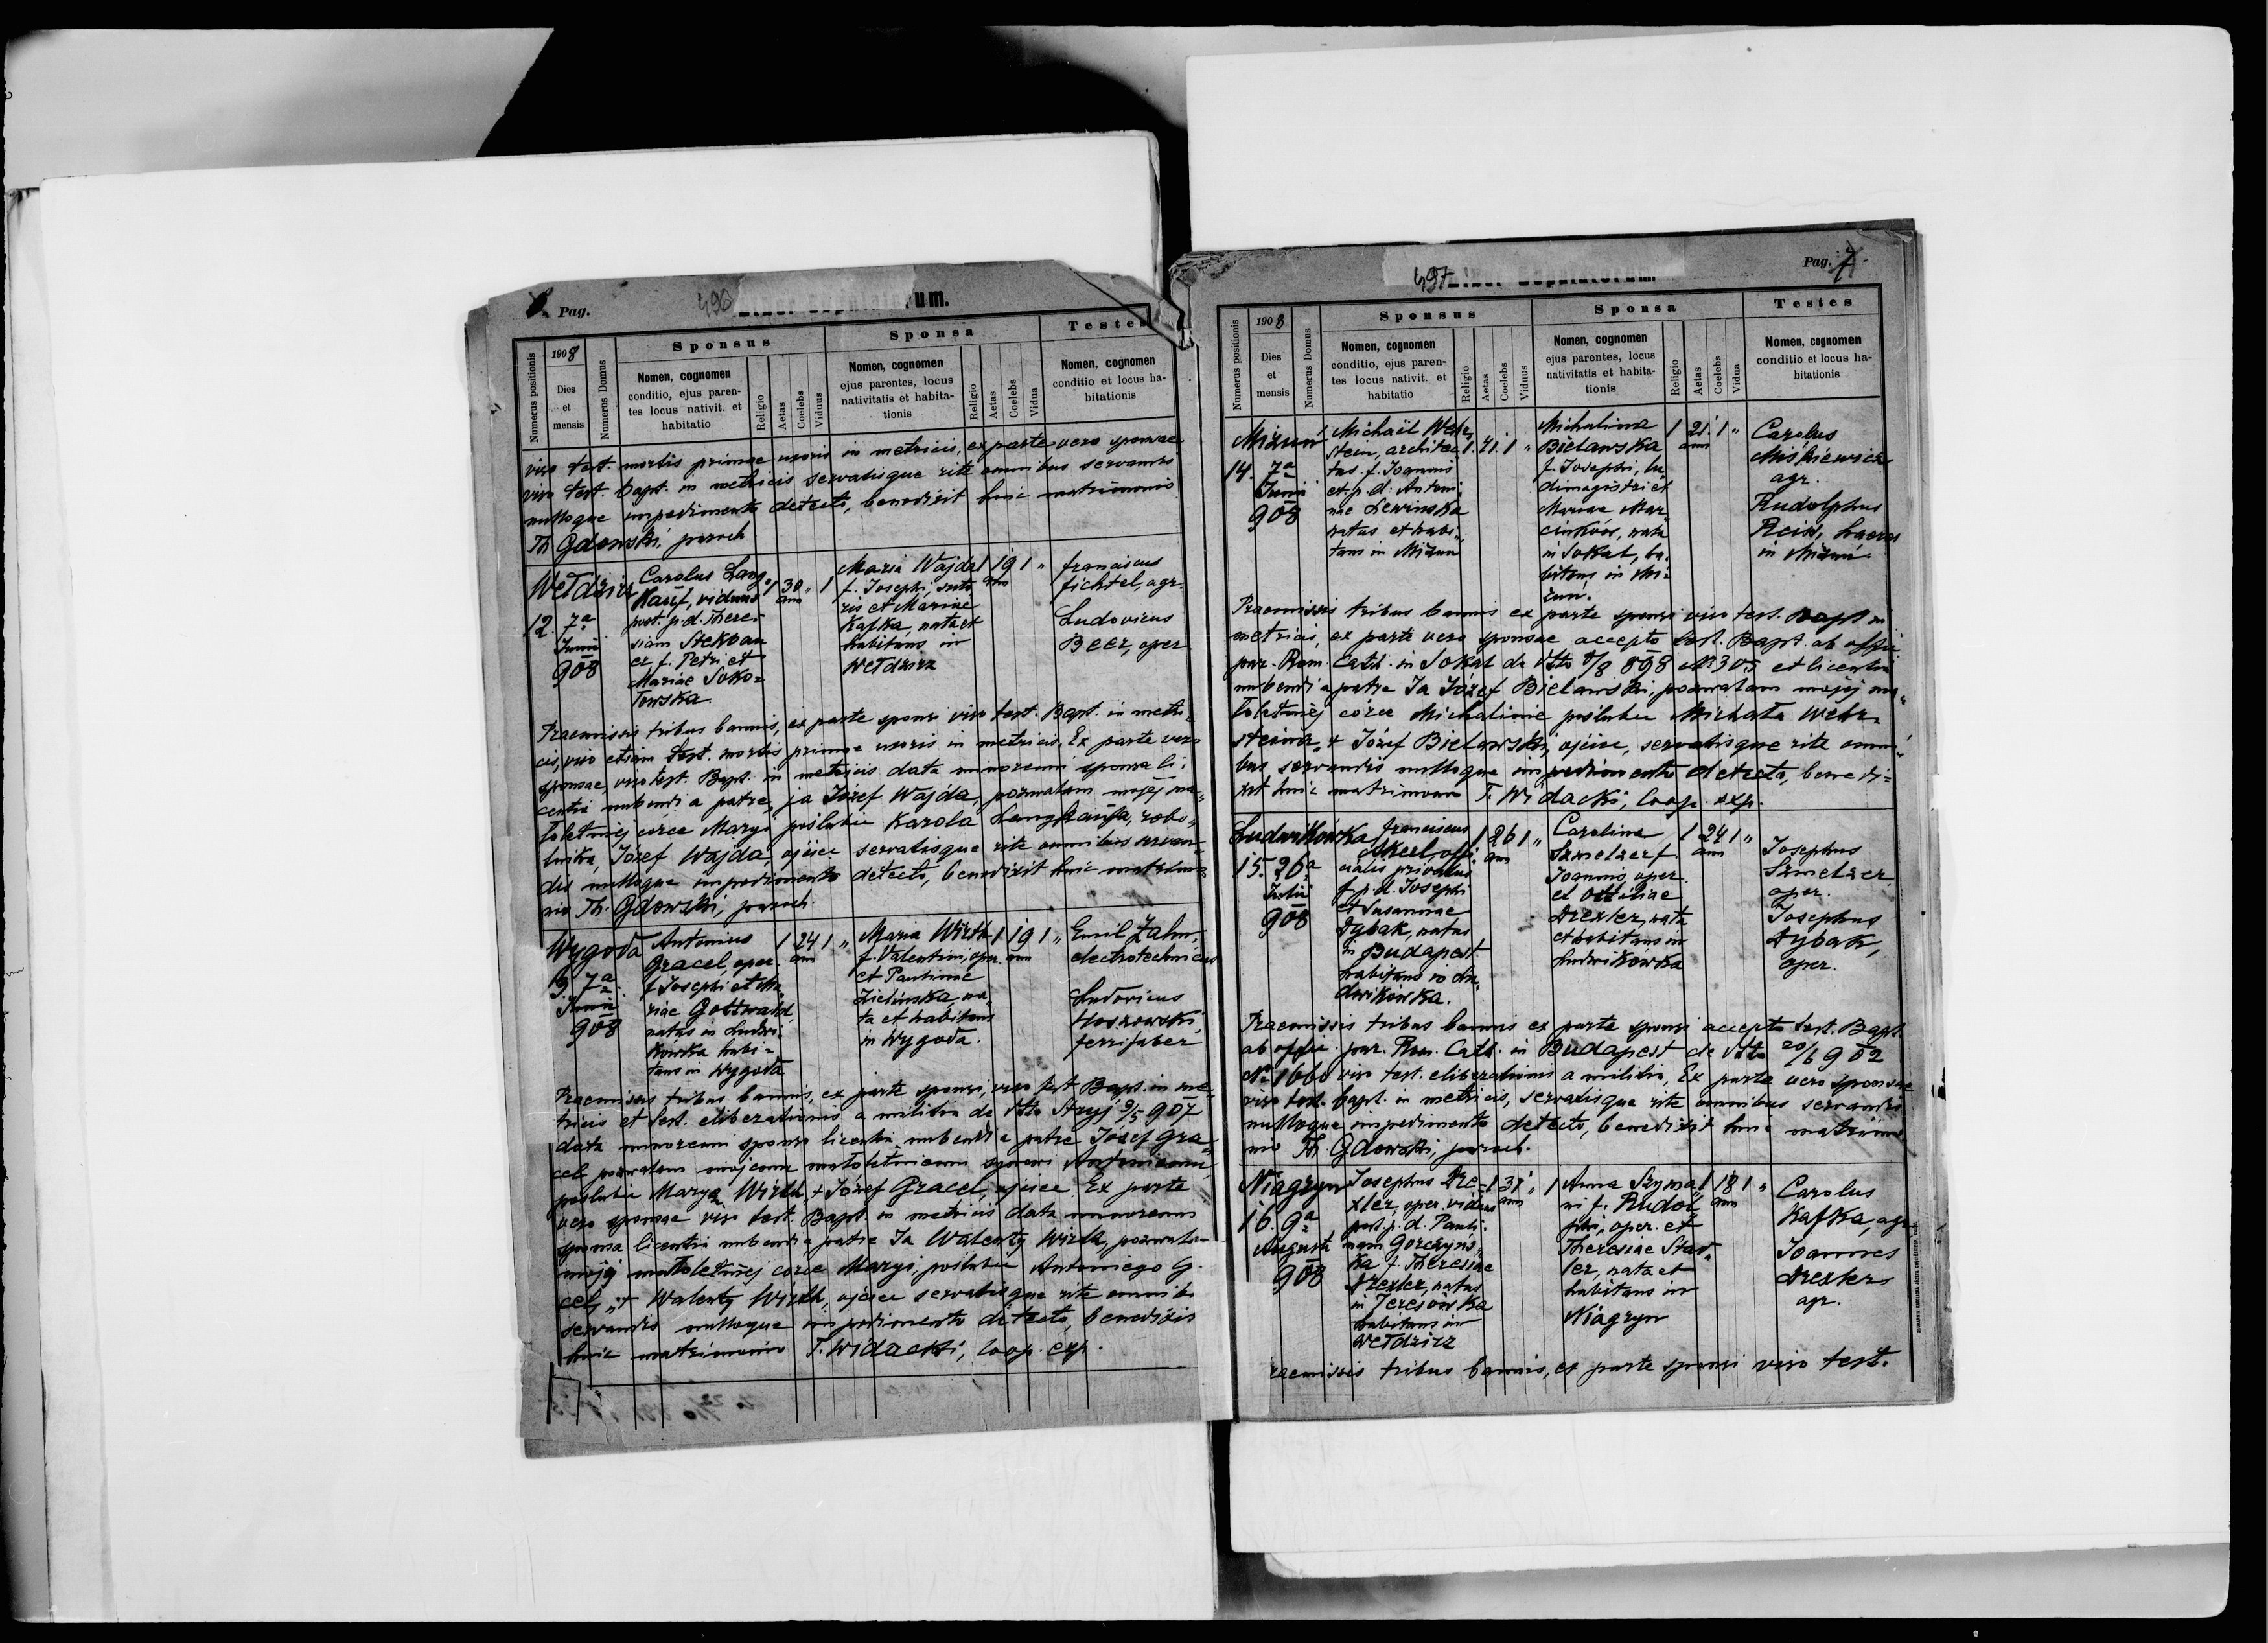 Pag.
Liber Copulatorum.
Numerus positionis
1908
Dies
et
mensis
Numerus Domus
Sponsus
Nomen, cognomen
conditio, ejus paren-
tes locus nativit. et
habitatio
Religio
Aetas
Coelebs
Viduus
Sponsa
Nomen, cognomen
ejus parentes, locus
nativitatis et habita-
tionis
Religio
Aetas
Coelebs
Vidua
Testes
Nomen, cognomen
conditio et locus ha-
bitationis
viso test. mortis primae uxoris in metricis, ex parte vero sponsae
viso test. bapt. in metricis servatisque rite omnibus servandis
nulloque impedimento detecto, benedixit huic matrimonio
Th. Gdowski, paroch
Wełdzirz
12. 7a
Junii
908
Carolus Lang-
Kauf, viduus
post. p. d. There-
siam Stekbau
er, f. Petri et
Mariae Soko-
łowska
1 30 ann " 1
Maria Wajda
f. Josephi, suto
ris et Mariae
Kafka, nata et
habitans in
Wełdzirz
1 19 ann 1 "
Franciscus
Fichtel, agr.
Ludovicus
Beer, oper
Praemissis tribus bannis, ex parte sponsi viso test. Bapt. in metri-
cis, viso etiam test. mortis primae uxoris in metricis. Ex parte vero
sponsae, viso test. Bapt. in metricis data minorenni sponsa li-
centia nubendi a patre, ja Józef Wajda, pozwalam mojej ma-
łoletniej córce Maryi poślubić Karola Langkaufa, robo-
tnika, Józef Wajda, ojciec servatisque rite omnibus servan-
dis nulloque impedimento detecto, benedixit huic matrimo-
nio Th. Gdowski, paroch.
Wygoda
13. 7a
Junii
908
Antonius
Gracel, oper.
f. Josephi et Ma
riae Gottwald,
natus in Ludwi-
kowka habi-
tans in Wygoda
1 24 ann 1 "
Maria Wirth
f. Valentini, oper.
et Paulinae
Zielińska, na-
ta et habitans
in Wygoda.
1 19 ann 1 "
Emil Zahn,
electrotechnicus
Ludovicus
Hoszowski,
ferrifaber
Praemissis tribus bannis, ex parte sponsi, viso test Bapt. in me-
tricis et test. eliberationis a militia de dtto Stryj 9/5 907
data minorenni sponso licentia nubendi a patre Józef Gra-
cel pozwalam mojemu małoletniemu synowi Antoniemu,
poślubić Maryę Wirth, + Józef Gracel, ojciec Ex parte
vero sponsae viso test. Bapt. in metricis data minorenni
sponsa licentia nubendi a patre Ja Walenty Wirth, pozwala-
mojej małoletniej córce Maryi, poślubić Antoniego G.
cel, "+ Walenty Wirth, ojciec servatisque rite omnib.
servandis nulloque impedimento detecto, benedixit
huic matrimonio T. Widacki, coop. exp.
497
Liber Copulatorum.
Pag. 7.
Numerus positionis
1908
Dies
et
mensis
Numerus Domus
Sponsus
Nomen, cognomen
conditio, ejus paren-
tes locus nativit. et
habitatio
Religio
Aetas
Coelebs
Viduus
Sponsa
Nomen, cognomen
ejus parentes, locus
nativitatis et habita-
tionis
Religio
Aetas
Coelebs
Vidua
Testes
Nomen, cognomen
conditio et locus ha-
bitationis
Mizuń
14. 7a
Junii
908
Michaël Wehr
stein, architec
tus. f. Joannis
et p. d. Antoni-
nae Lewinska
natus et habi-
tans in Mizun
1. 41. 1 "
Michalina
Bielawska,
f. Josephi, lu
dimagistri et
Mariae Mar
cinków, nata
in Sokal, ha-
bitans in Mi-
zun.
1 21 ann 1 "
Carolus
Miśkiewicz
agr.
Rudolphus
Reiss,
in Mizuń
Praemissis tribus bannis ex parte sponsi viso test. Bapt. in
metricis, ex parte vero sponsae accepto test. Bapt. ab offic.
par. Rom. Cath. in Sokal de dtto 8/8 898 № 305 et licentia
nubendi a patre Ja Józef Bielawski, pozwalam mojej ma-
łoletniej córce Michalinie poślubić Michała Wehr-
steina, + Józef Bielawski, ojciec, servatisque rite omni-
bus servandis nulloque impedimento detecto, benedi-
xit huic matrimonio T. Widacki, coop. exp.
Ludwikówka
15. 26a
Julii
908
Franciscus
Akerl, offi-
cialis privatus
f. p. d. Josephi
et Susannae
Dybak, natus
in Budapest
habitans in Lu-
dwikówka.
1 26 ann 1 "
Carolina
Szmelzer f.
Joannis oper.
et Ottiliae
Drexler, nata
et habitans in
Ludwikowka
1 24 ann 1 "
Josephus
Szmelzer
oper.
Josephus
Dybak,
oper.
Praemissis tribus bannis ex parte sponsi accepto test. Bapt.
ab offic. par. Rom. Cath. in Budapest de dtto 20/6 902
№ 1660 viso test. eliberationis a militia, Ex parte vero sponsae
viso test. bapt. in metricis, servatisque rite omnibus servandis
nulloque impedimento detecto, benedixit huic matrimo
nio Th. Gdowski, paroch.
Niagryn
16. 9a
Augusti
908
Josephus Dre-
xler, oper. viduus
post. p. d. Pauli-
nam Gorczyńs-
ka f. Theresiae
Drexler, natus
in Teresówka
habitans in
Wełdzirz
1 31 ann " 1
Anna Szyma
ni f. Rudol
phi, oper. et
Theresiae Stad-
ler, nata et
habitans in
Niagryn
1 18 ann 1 "
Carolus
Kafka, agr.
Joannes
Drexler
agr.
raemissis tribus bannis, ex parte sponsi viso test.